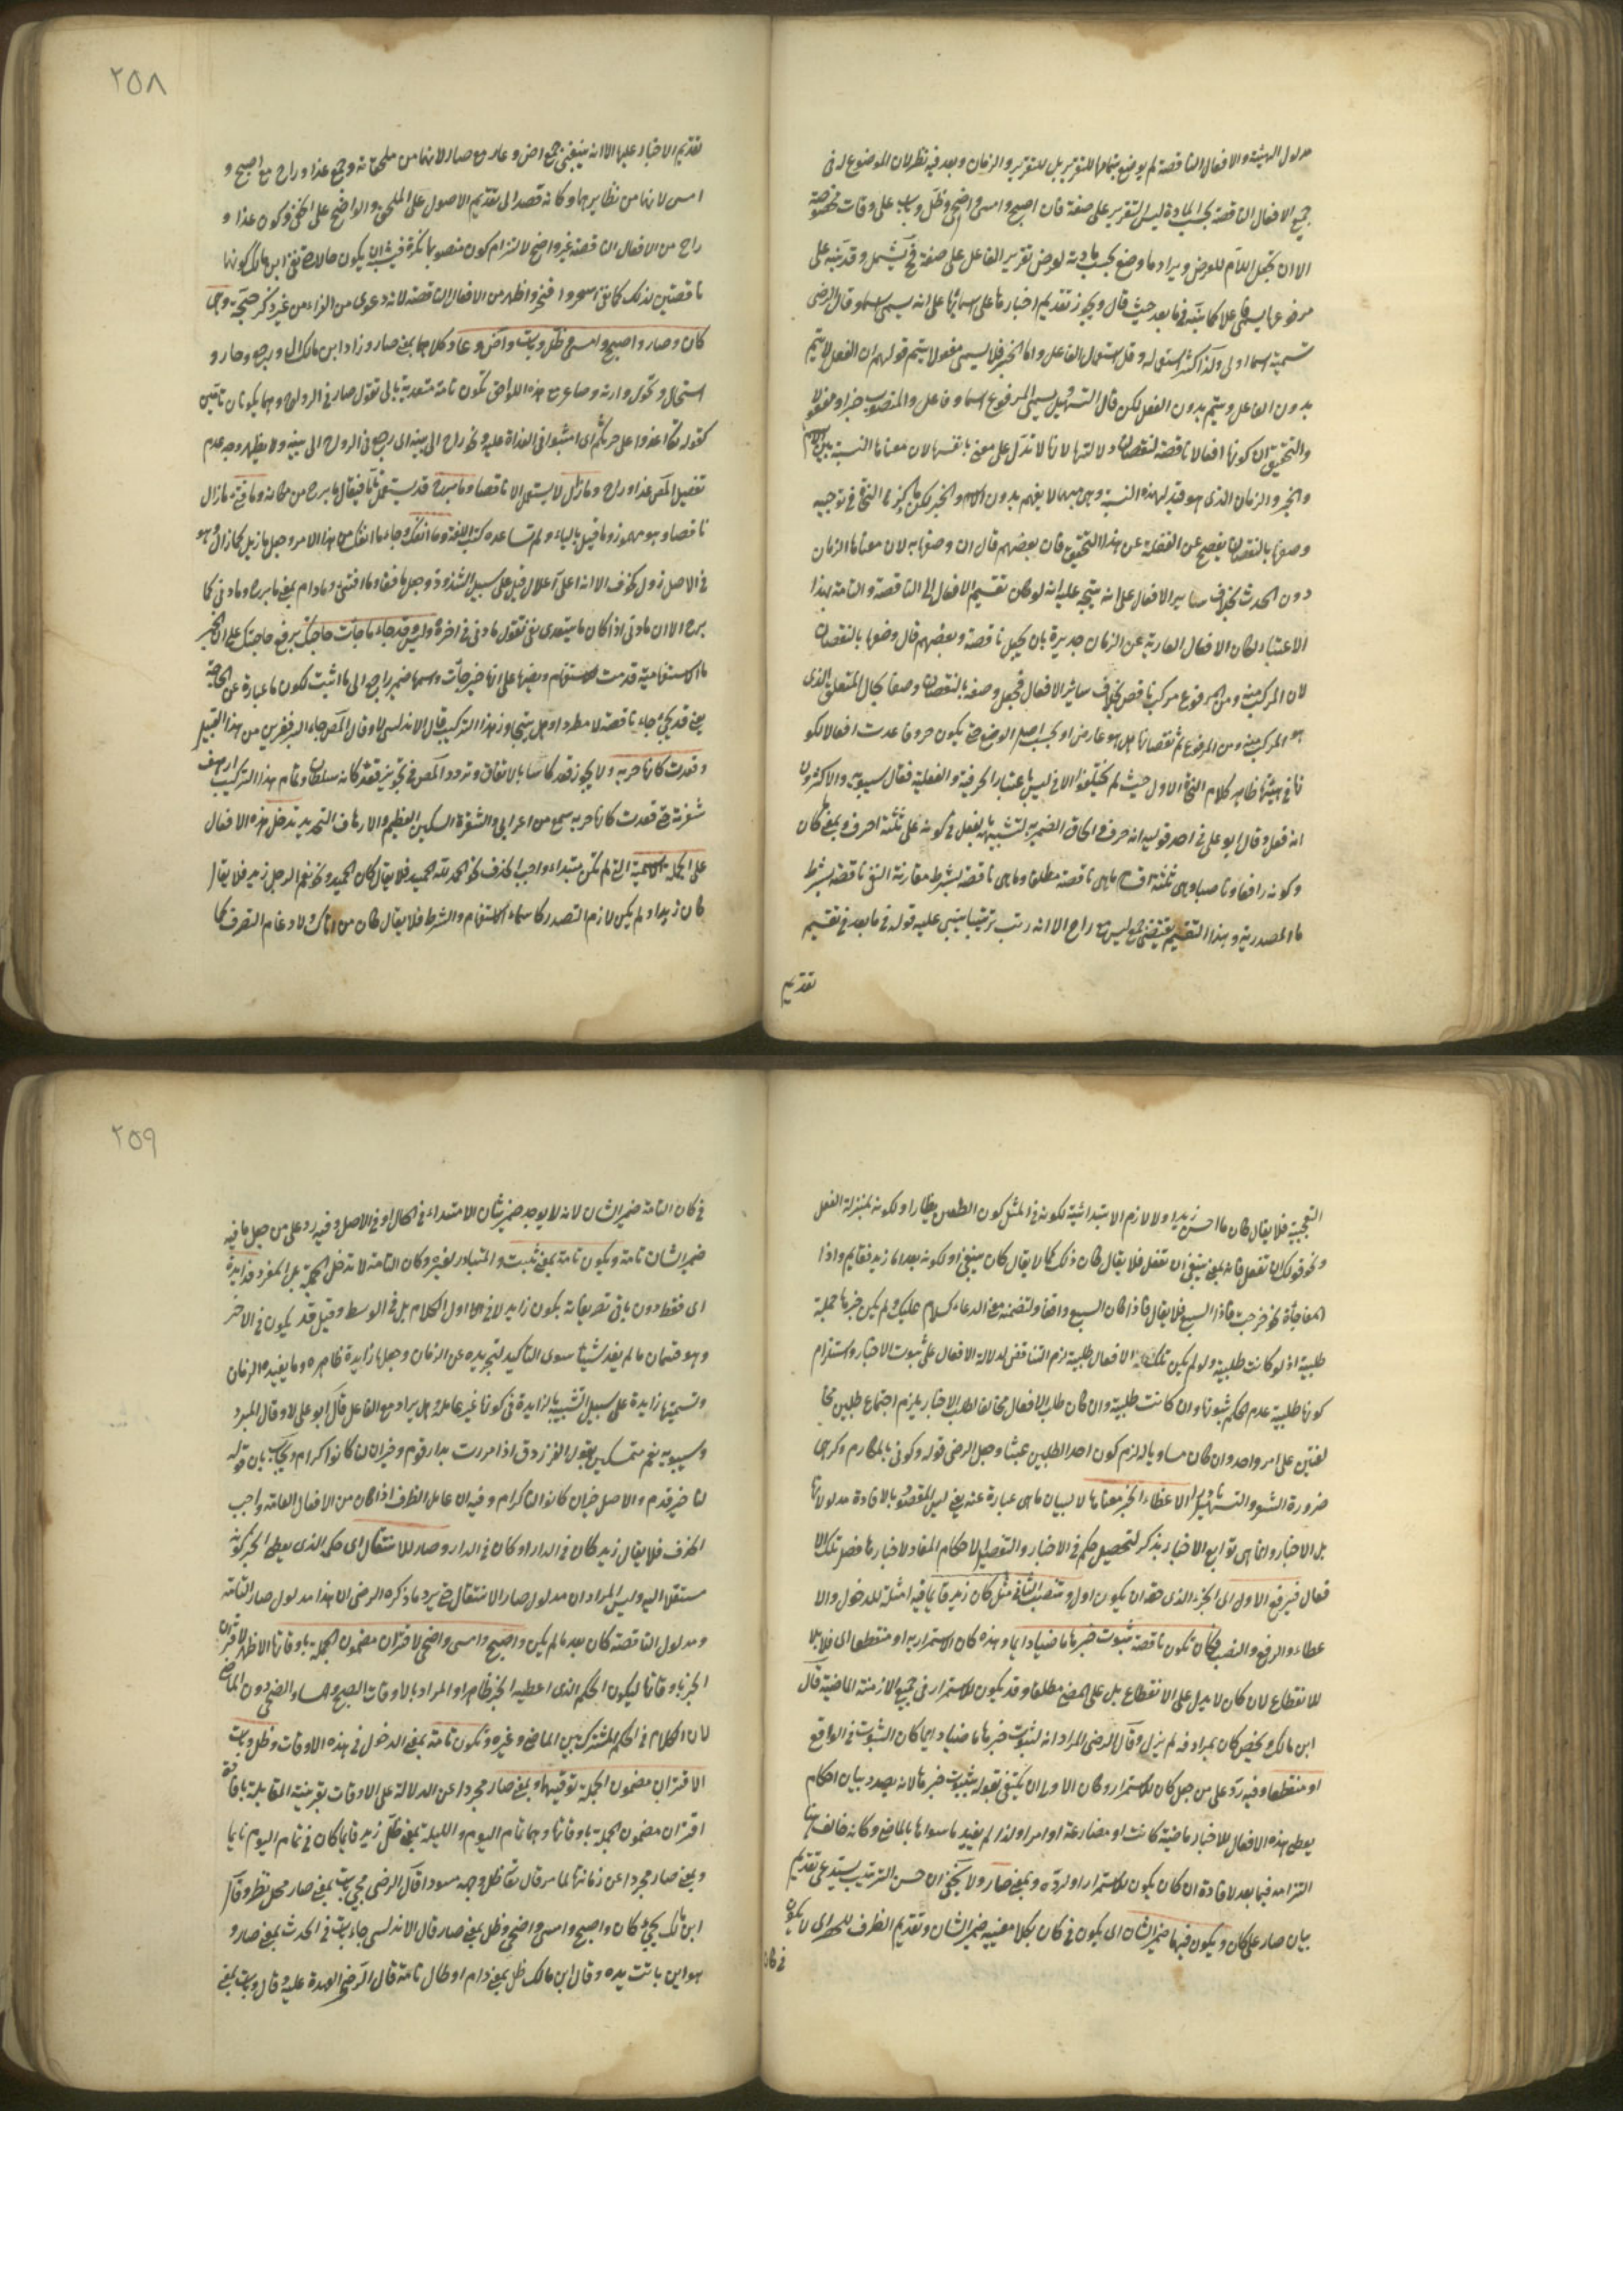 مدلول الهيئة والافعال الناقصة لم يوضع بتمامها للتقرير بل للتقرير والزمان وبعد فيه نظر لان الموضوع له في
جميع الافعال الناقصة بحسب المادة ليس التقرير على صفة فان اصبح وامسى واضحى وظل وبات على وقات مخصوصة
الا ان تجعل اللام للعرض ويراد ما وضع بحسب مادته لعرض تقرير الفاعل على صفة فح يشمل وقد نبه على
مرفوعها يسمى فاعلا كما نبه فيما بعد حيث قال ويجوز تقديم اخبارها على اسمائها على انه يسمى اسما وقال الرضى
تسمية اسما اولى ولذا كثر استعماله وقل استعمال الفاعل واما الخبر فلا يسمى مفعولا ليتم قولهم ان الفعل لا يتم
بدون الفاعل ويتم بدون المفعول لكن قال التسهيل يسمى المرفوع اسما وفاعلا والمنصوب خبرا ومفعولا
والتحقيق ان كونها افعالا ناقصة لنقصان دلالتها لانها لا تدل على معنى بانفسها لان معناها النسبة بين الاسم
والخبر والزمان الذى هو قيد لهذه النسبة وهى مما لا يفهم بدون الاسم والخبر لكن ما ذكر النحاة في توجيه
وصفها بالنقصان يفصح عن الغفلة عن هذا التحقيق فان بعضهم قال ان وصفها به لان معناها الزمان
دون الحدث بخلاف سائر الافعال على انه يتجه عليه انه لو كان تقسيم الافعال الى الناقصة والتامة بهذا
الاعتبار لكان الافعال العارية عن الزمان جديرة بان يجعل ناقصة وبعضهم قال وصفها بالنقصان
لان المركب منه ومن المرفوع مركب ناقص بخلاف سائر الافعال فجعل وصفه بالنقصان وصفا بحال المتعلق الذى
هو المركب منه ومن المرفوع ثم نقصانها هل هو عارض او بحسب اصل الوضع حتى يكون حروفا عدت افعالا لكو
نها في هيئتها ظاهر كلام النحاة الاول حيث لم يختلفوا الا في ليس باعتبار الحرفية والفعلية فقال سيبويه والاكثرون
انه فعل وقال ابو على في احد قوليه انه حرف والحاق الضمير به لتشبيهه بالفعل في كونه على ثلثة احرف وبمعنى ما كان
وكونه رافعا وناصبا وهى ثلثة اقسام ما هى ناقصة مطلقا وما هى ناقصة بشرط مقارنة النفى ناقصة بشرط
ما المصدرية وهذا التقسيم يقتضى جمع ليس مع راح الا انه رتب ترتيبا يبنى عليه قوله فيما بعد في تقسيم
تقديم
٢٥٨
تقديم الاخبار عليها الا انه ينبغي جمع اض وعاد مع صار لانهما من ملحقاته وجمع غدا وراح مع اصبح و
امسى لانهما من نظايرهما وكانه قصد الى تقديم الاصول على الملحق والواضح على الخفى وكون غدا و
راح من الافعال الناقصة غير واضح لالتزام كون منصوبها نكرة فيشبه ان يكون حالا ونفى ابن مالك كونهما
ناقصتين لذلك كما نفى اسحر وافجر واظهر من الافعال الناقصة لانه دعوى من الفراء من غير ذكر حجة وهى
كان وصار واصبح وامسى وظل وبات واض وعاد وكلاهما بمعنى صار وزاد ابن مالك ال ورجع وحار و
استحال وتحول وارتد وصار مع هذه اللواحق تكون تامة متعدية بالى تقول صار في الرواح وهما يكونان تامتين
كقوله تعالى اغدوا على حرثكم اى امشوا في الغداة عليه ونحو راح الى بيته اى رجع في الرواح الى بيته ولا يظهر وجه عدم
تفصيل المص غدا وراح وما زال لا يستعمل الا ناقصا وما برح قد يستعمل تاما فيقال ما برح من مكانه وما فتى ما زال
ناقصا وهو مهموز وما قيل بالياء ولم تساعده كتب اللغة وما انفك وجاء ما انفك من هذا الامر
في الاصل
برح الا ان ما دنى اذا كان ما يتعدى بفى تقول ما دنى في اخره وليس وقد جاء ما جاءت حاجتك برفع حاجتك على ان الخبر
ما الاستفهامية قدمت للاستفهام وبنصبها على انها خبر جاءت واسمها ضمير راجع الى ما انثت لكون ما عبارة عن الحاجة
يعنى قد يجئ جاء ناقصة لا مطردا وهل يتجاوز هذا التركيب قال الاندلسى لا وقال المص جاء البر قفيزين من هذا القبيل
وقعدت كانها حربة ولا يجوز قعد كاتبا بالاتفاق وتردد المص في تجويز قعد كانه سلطان وتمام هذا التركيب ارهف
شفرته حتى قعدت كانها حربة سمع من اعرابى والشفرة السكين العظيم والارهاف التحديد تدخل هذه الافعال
على الجملة الاسمية التى لم تكن مبتداء واجب الحذف نحو الحمد لله الحميد فلا يقال كان الحميد ونحو نعم الرجل زيد فلا يقال
كان زيد ولم يكن لازم التصدر كاسماء الاستفهام والشرط فلا يقال كان من اتاك ولا وعادم التصرف كما
التعجبية فلا يقال كان ما احسن زيدا ولا لازم الابتدائية لكونه في المثل كون الطعن يظار او لكونه بمنزلة الفعل
ونحو قولك ان تفعل فانه بمعنى ينبغى ان تفعل فلا يقال كان ذلك كما لا يقال كان ينبغى او لكونه بعد اما زيد فقايم واذا
المفاجأة نحو خرجت فاذا السبع فلا يقال فاذا كان السبع واقفا ولتضمنه معنى الدعاء كسلام عليك ولم يكن خبرها جملة
طلبية اذ لو كانت طلبية ولو لم يكن تلك الافعال طلبية لزم التناقض لدلالة الافعال على ثبوت الاخبار واستلزام
كونها طلبية عدم الحكم بثبوتها وان كانت طلبية وان كان طلب الافعال مخالفا لطلب الاخبار يلزم اجتماع طلبين مخا
لفتين على امر واحد وان كان مساويا له لزم كون احد الطلبين عبثا وجعل الرضى قوله وكونى بالمكارم ذكرينى
ضرورة الشعر والتسهيل نادرا لاعطاء الخبر معناها لا لبيان ما هى عبارة عنه يعنى ليس المقصود بالافادة مدلولاتها
بل الاخبار وانما هى توابع الاخبار يذكر لتحصيل حكم في الاخبار والتوصل لاحكام المفاد لاخبارها فضل تلك الا
فعال فيرفع الاول اى الجزء الذى حقه ان يكون اول وتنصب الثانى مثل كان زيد قايما فيه امثلة للدخول والا
عطاء والرفع والنصب فكان تكون ناقصة لثبوت خبرها ماضيا دايما وهذه كان الاستمرارية او منقطعا اى قابلا
للانقطاع لان كان لا يدل على الانقطاع بل على المضى مطلقا وقد يكون للاستمرار في جميع الازمنة الماضية قال
ابن مالك ويختص كان بمرادفة لم يزل وقال الرضى المراد انه لثبوت خبرها ماضيا دايما كان الثبوت في الواقع
او منقطعا وفيه رد على من جعل كان للاستمرار وكان الاولى ان يكتفى بقوله لثبوت خبرها لانه بصدد بيان احكام
يعطى هذه الافعال للاخبار ماضية كانت او مضارعة او امرا ولذا لم يقيد ما سواها بالماضى وكانه خالف هنا
التزامه فيما بعد لافادة ان كان يكون للاستمرار او لرده وبمعنى صار ولا يخفى ان حسن الترتيب يستدعى تقديم
بيان صار على كان ويكون فيها ضمير الشان اى يكون في كان بكلا معنييه ضمير الشان وتقديم الظرف للحصر اى لا يكون
في كان
٢٥٩
في كان التامة ضمير الشان لانه لا يوجد ضمير شان الا مبتداء في الحال او في الاصل وفيه رد على من جعل ما فيه
ضمير الشان تامة ويكون تامة بمعنى ثبت والمتبادر لغيره وكان التامة لا تدخل الجملة بل المفرد وزايدة
اى فقط دون باقى تصريفاته يكون زايد لا في اول الكلام بل في الوسط وقيل قد يكون في الاخر
وهو قسمان ما لم يفد شيئا سوى التاكيد لتجريده عن الزمان وجعلها زايدة ظاهره وما يفيد الزمان
وتسميتها زايدة على سبيل التشبيه بالزايدة في كونها غير عاملة وهل يراد مع الفاعل قال ابو على لا وقال المبرد
وسيبويه نعم متمسكين بقول الفرزدق اذا مررت بدار قوم وجيران لنا كانوا كرام ويجاب بان قوله
لنا خبر قدم والاصل جيران كانوا لنا كرام وفيه ان عامل الظرف اذا كان من الافعال العامة واجب
الحذف فلا يقال زيد كان في الدار او كان في الدار وصار للانتقال اى حكمه الذى يعطى الخبر كونه
منتقلا اليه وليس المراد ان مدلول صار الانتقال حتى يرد ما ذكره الرضى ان هذا مدلول صار التامة
ومدلول الناقصة كان بعد ما لم يكن واصبح وامسى واضحى لاقتران مضمون الجملة باوقاتها الاظهر لاقتران
الخبر باوقاتها ليكون الحكم الذى اعطيه الخبر ظاهرا والمراد بالاوقات الصبح والمساء والضحى دون الماضى
لان الكلام في الحكم المشترك بين الماضى وغيره وتكون تامة بمعنى الدخول في هذه الاوقات وظل وبات
لاقتران مضمون الجملة بوقتيهما وبمعنى صار مجردا عن الدلالة على الاوقات بقرينة المقابلة بافادة
اقتران مضمون الجملة باوقاتها وهما تمام اليوم والليلة بمعنى ظل زيد قايما كان في تمام اليوم قايما
وبمعنى صار مجردا عن زمانها لما مر قال تعالى ظل وجهه مسودا قال الرضى مجئ بات بمعنى صار محل نظر وقال
ابن مالك يجئ كان واصبح وامسى واضحى وظل بمعنى صار قال الاندلسى جاء بات في الحدث بمعنى صار و
هو اين باتت يده وقال ابن مالك ظل بمعنى دام او طال تامة قال الرضى العهدة عليه وقال وبات بمعنى